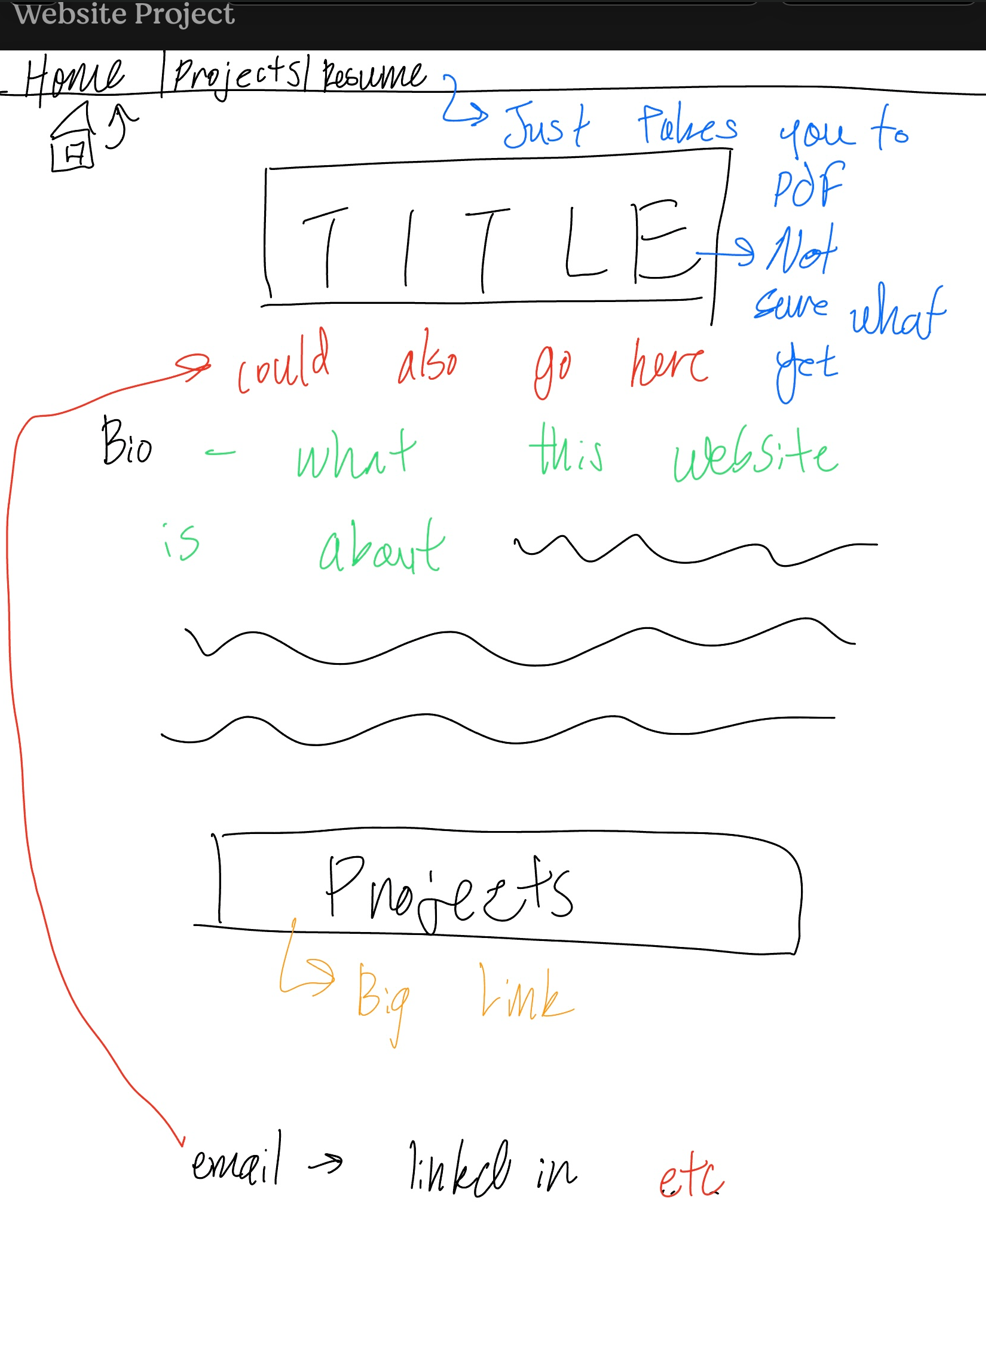 Website Project
Home | Projects | Resume
Just takes you to
PDF
TITLE
Not
sure what
yet
could also go here
Bio - what this website
is about
Projects
Big Link
email → linked in etc